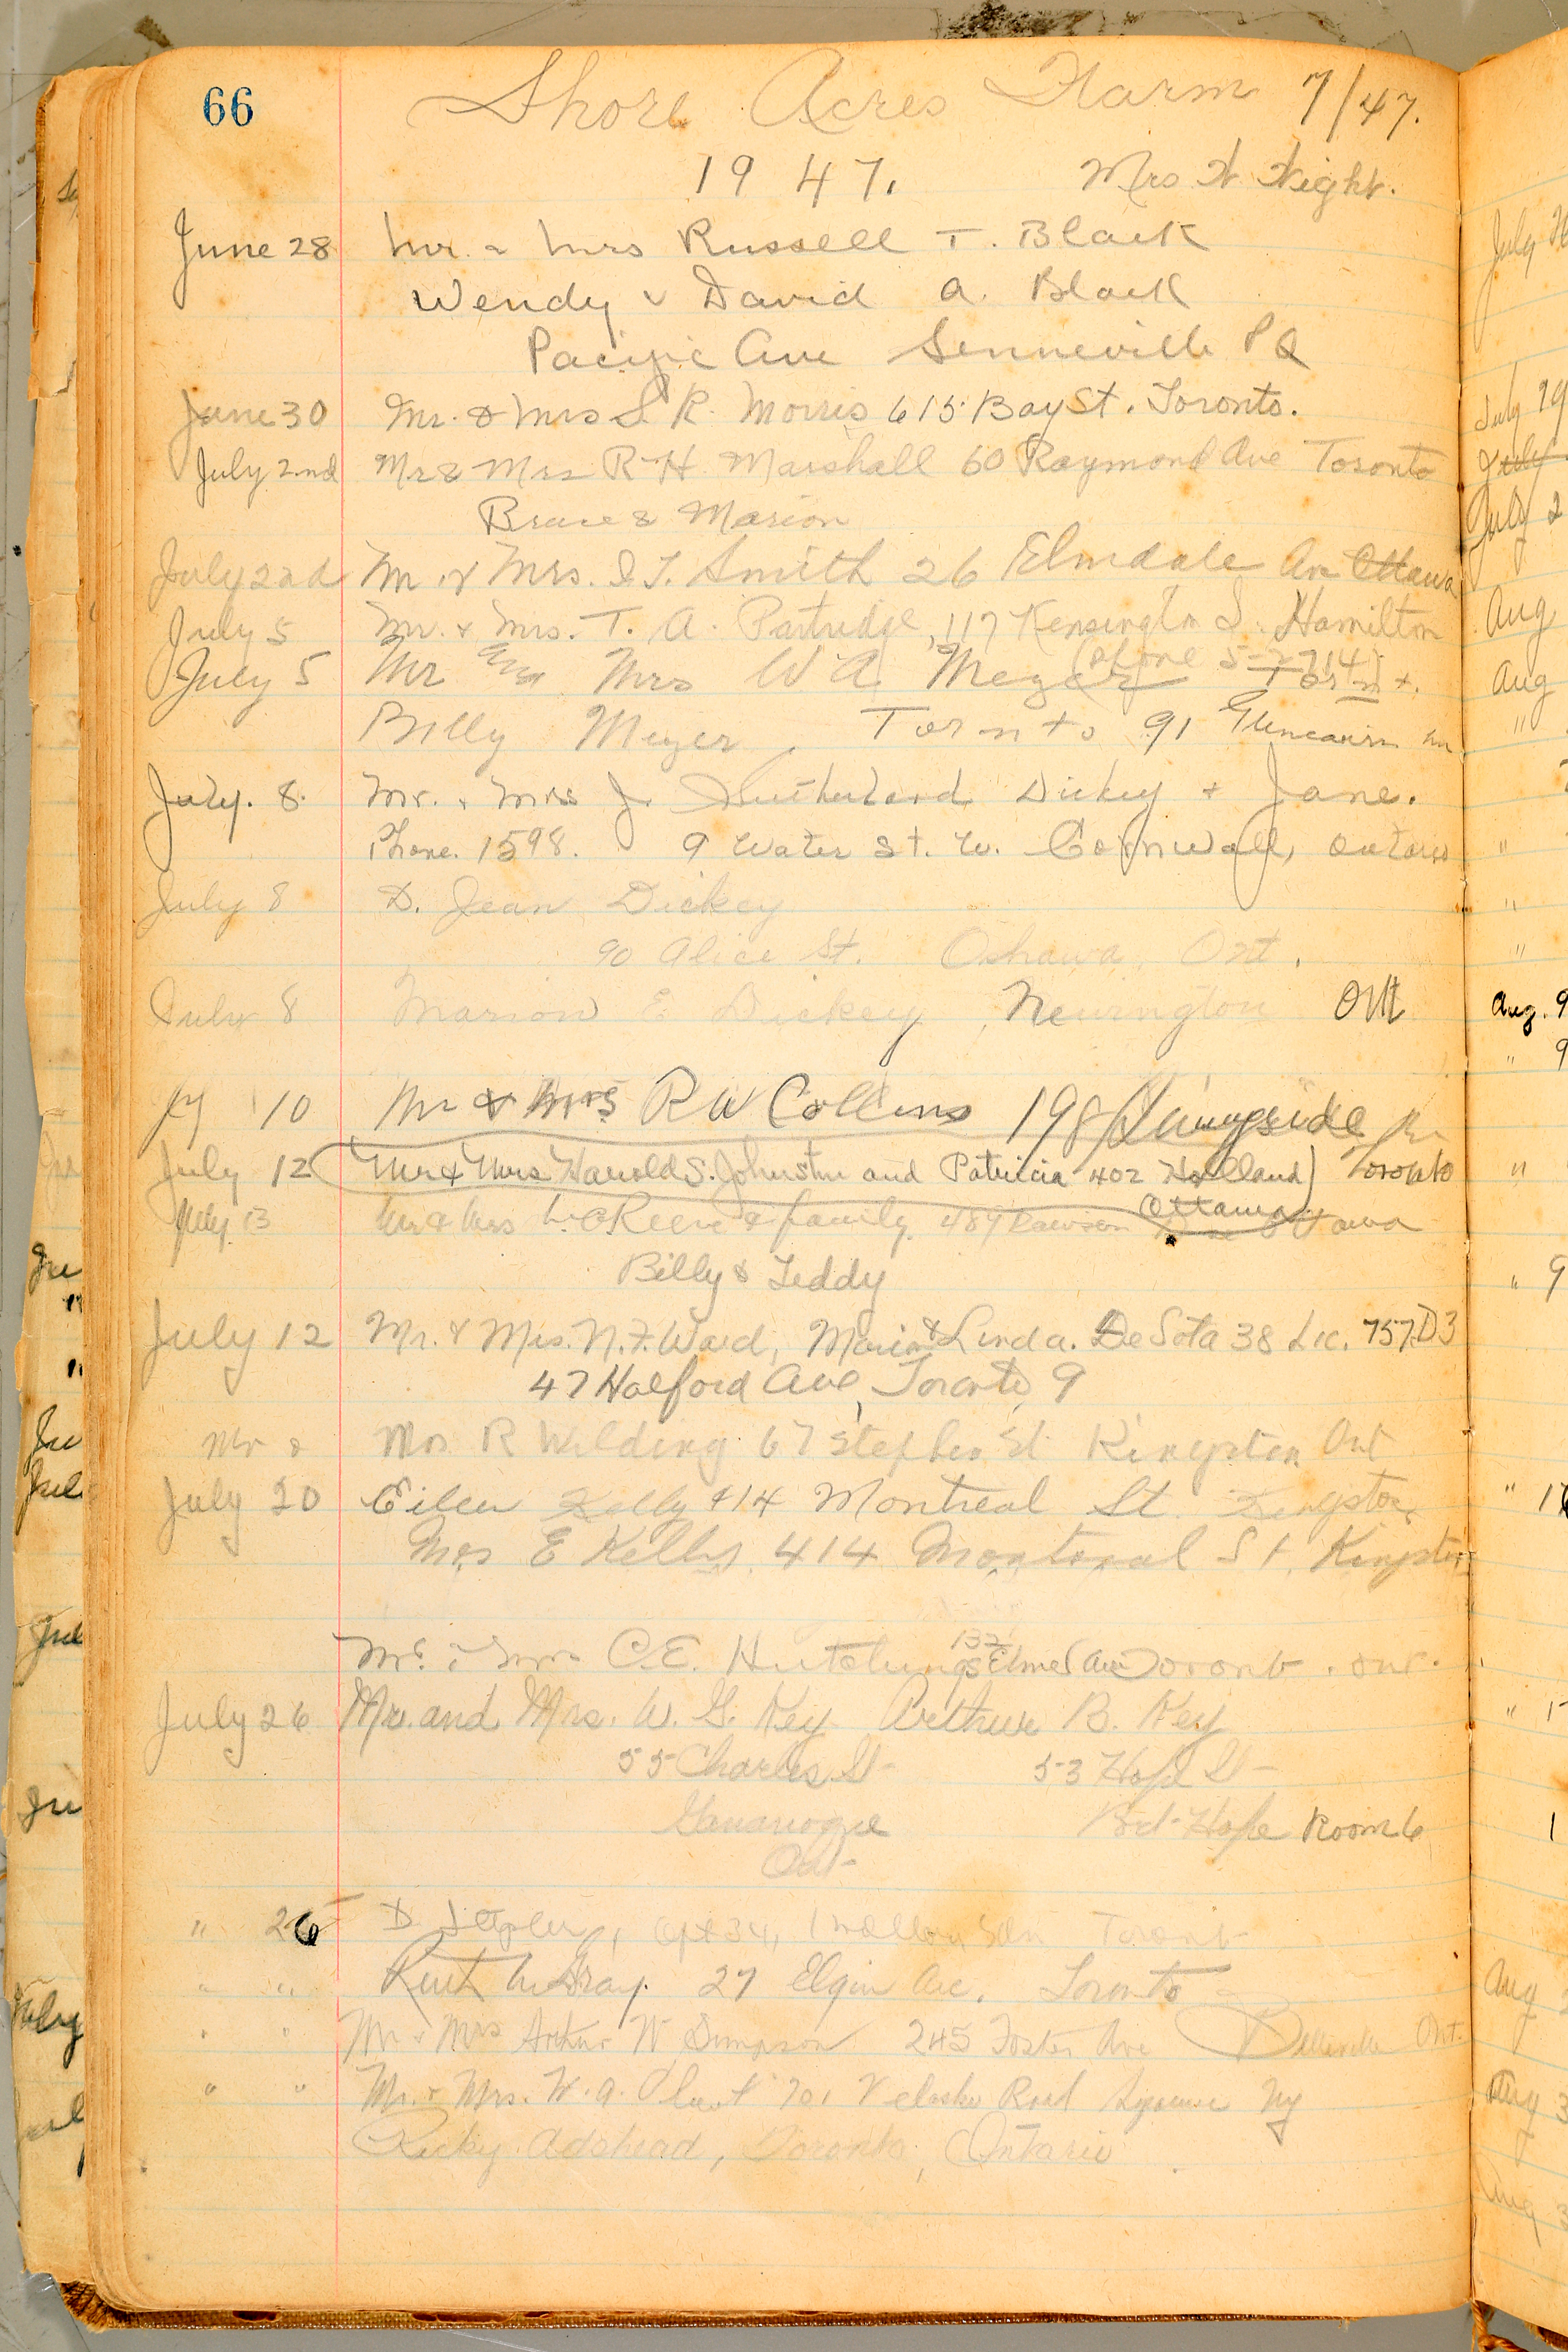 66
Shore Acres Farm 7/47.
1947. Mrs H Hight.
June 28 Mr. & Mrs Russell T. Black
Wendy & David A. Black
Pacific Ave Senneville PQ
June 30 Mr. & Mrs S. R. Morris 615 Bay St. Toronto.
July 2nd Mr & Mrs R H Marshall 60 Raymond Ave Toronto
Bruce & Marion
July 2nd M. & Mrs. I T. Smith 26 Elmdale Av Ottawa
July 5 Mr. & Mrs. T. A. Partridge, 117 Kensington S. Hamilton
(Phone 5-2714)
July 5 Mr Mrs W A Meyer
Billy Meyer, Toronto 91 Glencairn
July. 8. Mr. & Mrs J. Sutherland Dickey & Jane.
Phone. 1598. 9 Water St. W. Cornwall, Ontario
July 8 D. Jean Dickey
90 Alice St. Oshawa, Ont.
July 8 Marion E. Dickey, Newington Ont
Jy 10 Mr & Mrs R W Collins 198 Sunnyside
July 12 Mr & Mrs Harold S. Johnston and Patricia 402 Holland) Toronto
Ottawa
July 13 Mr & Mrs & family 489 Dawson Ave Ottawa
Billy & Teddy
July 12 Mr. & Mrs. N. F. Ward, Marion & Linda. DeSota 38 Lic. 757D3
47 Halford Ave, Toronto, 9
Mr & Mrs R Wilding 67 Stephen St Kingston Ont
July 20 Eileen Kelly 414 Montreal St Kingston
Mrs E Kelly 414 Montreal St. Kingston
Mr. & Mrs C. E. Hutchings 137 Elmer Ave Toronto. Ont.
July 26 Mr. and Mrs. W. G. Key Arthur B. Key
55 Charles St 53 Hope St
Gananoque Port Hope Room 6
Ont
" 26 D , Apt 34, Toronto
" " Ruth McGray. 27 Elgin Ave. Toronto
" " Mr & Mrs Arthur W Simpson 245 Foster Ave Belleville Ont.
" " Mr. & Mrs. W. A. 701 Velasko Road Syracuse NY
Ricky Adshead, Toronto, Ontario